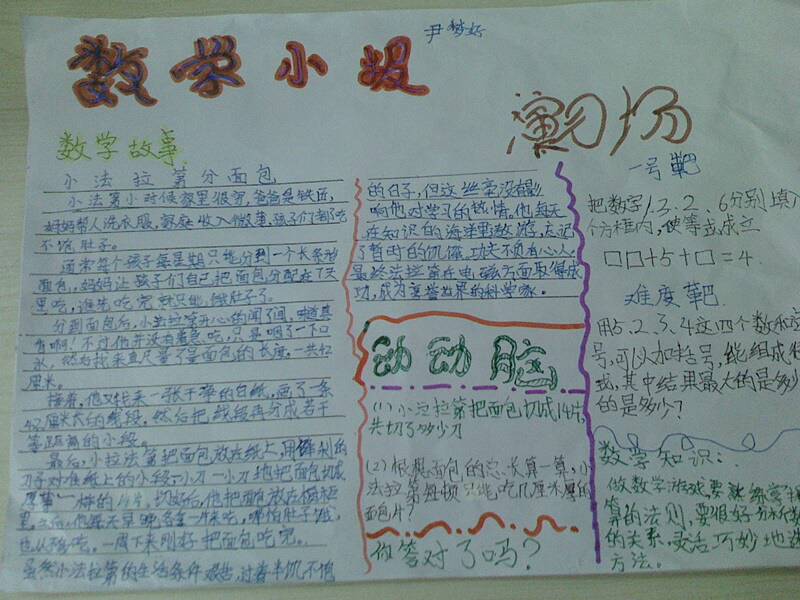 数学小报
尹梦妤
数学故事
小法拉第分面包
小法第小时候家里很穷,爸爸是铁匠,
妈妈帮人洗衣服,家庭收入微薄,孩子们都吃
不饱肚子。
通常每个孩子每星期只能分到一个长条形
面包,妈妈让孩子们自己把面包分配在7天
里吃,谁先吃完就只能饿肚子了。
分到面包后,小法拉第开心的闻了闻,味道真
香啊!不过他并没有着急吃,只是咽了一下口
水,然后找来直尺量了量面包的长度,一共42
厘米。
接着,他又找来一张干净的白纸,画了一条
42厘米长的线段,然后把线段再分成若干
等距离的小段。
最后,小拉法第把面包放在纸上,用锋利的
刀子对准纸上的小段,小刀一小刀地把面包切成
厚薄一样的14片,切好后,他把面包放在橱柜
里,之后,他每天早晚各拿一片来吃,哪怕肚子饿,
也从不多吃。一周下来刚好把面包吃完。
虽然小法拉第的生活条件艰苦,过着半饥不饱
的日子,但这丝毫没有影
响他对学习的热情。他每天
在知识的海洋里遨游,忘记
了暂时的饥饿,功夫不负有心人,
最终法拉第在电磁方面取得成
功,成为享誉世界的科学家。
动动脑
(1)小法拉第把面包切成14片,
共切了多少刀
(2)根据面包的总长算一算,小
法拉第每顿只能吃几厘米厚的
面包片?
你答对了吗?
演习场
一号靶
把数字1.3.2.6分别填入
个方框内,使等式成立
□□+5+□□=4.
难度靶
用5.2.3.4这四个数和运
号,可以加括号,能组成很
式,其中结果最大的是多少
的是多少?
数学知识:
做数学游戏,要熟练掌握
算的法则,要很好分析数
的关系,灵活巧妙地选
方法。